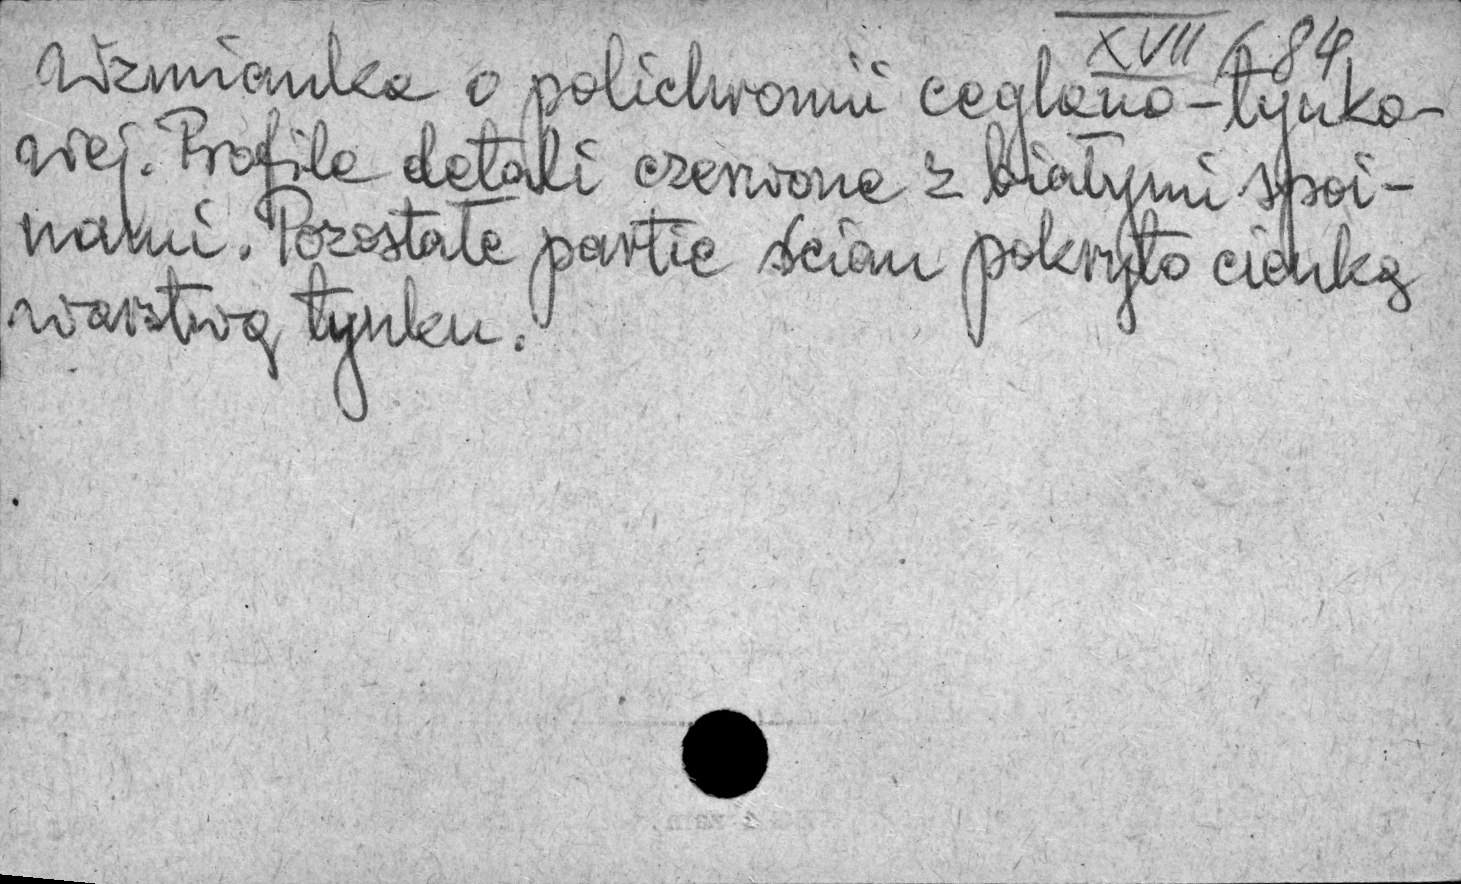 XVII/84
Wzmianka o polichromii ceglano-tynko-
wej. Profile detali czerwone z białymi spoi-
nami. Pozostałe partie ścian pokryto cienką
warstwą tynku.